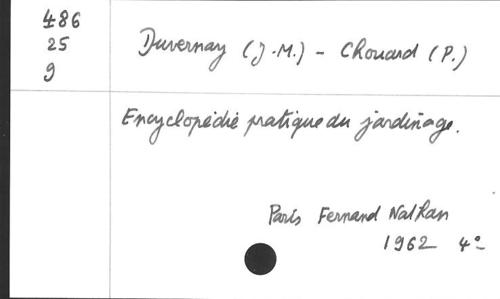 486
25
9
Duvernay (J.M.) - Chouard (P.)
Encyclopédie pratique du jardinage.
Paris Fernand Nathan
1962 4°